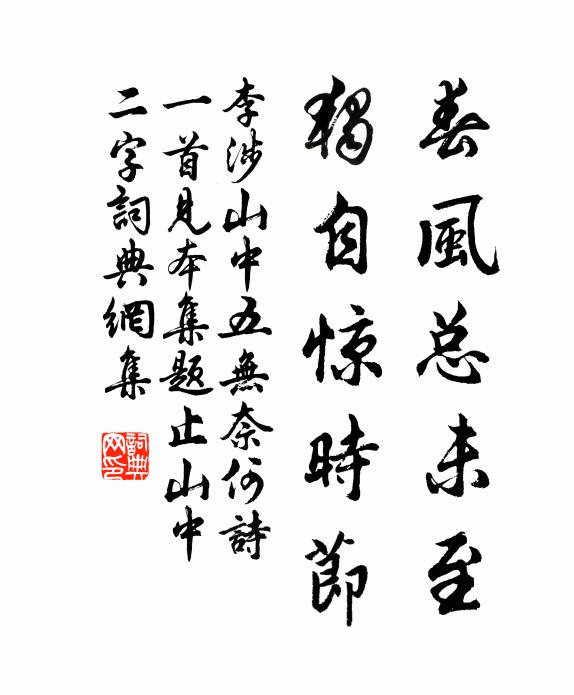 春風总未至
獨自惊時節
李涉山中五無奈何詩
一首見本集题止山中
二字詞典網集
詞典网印